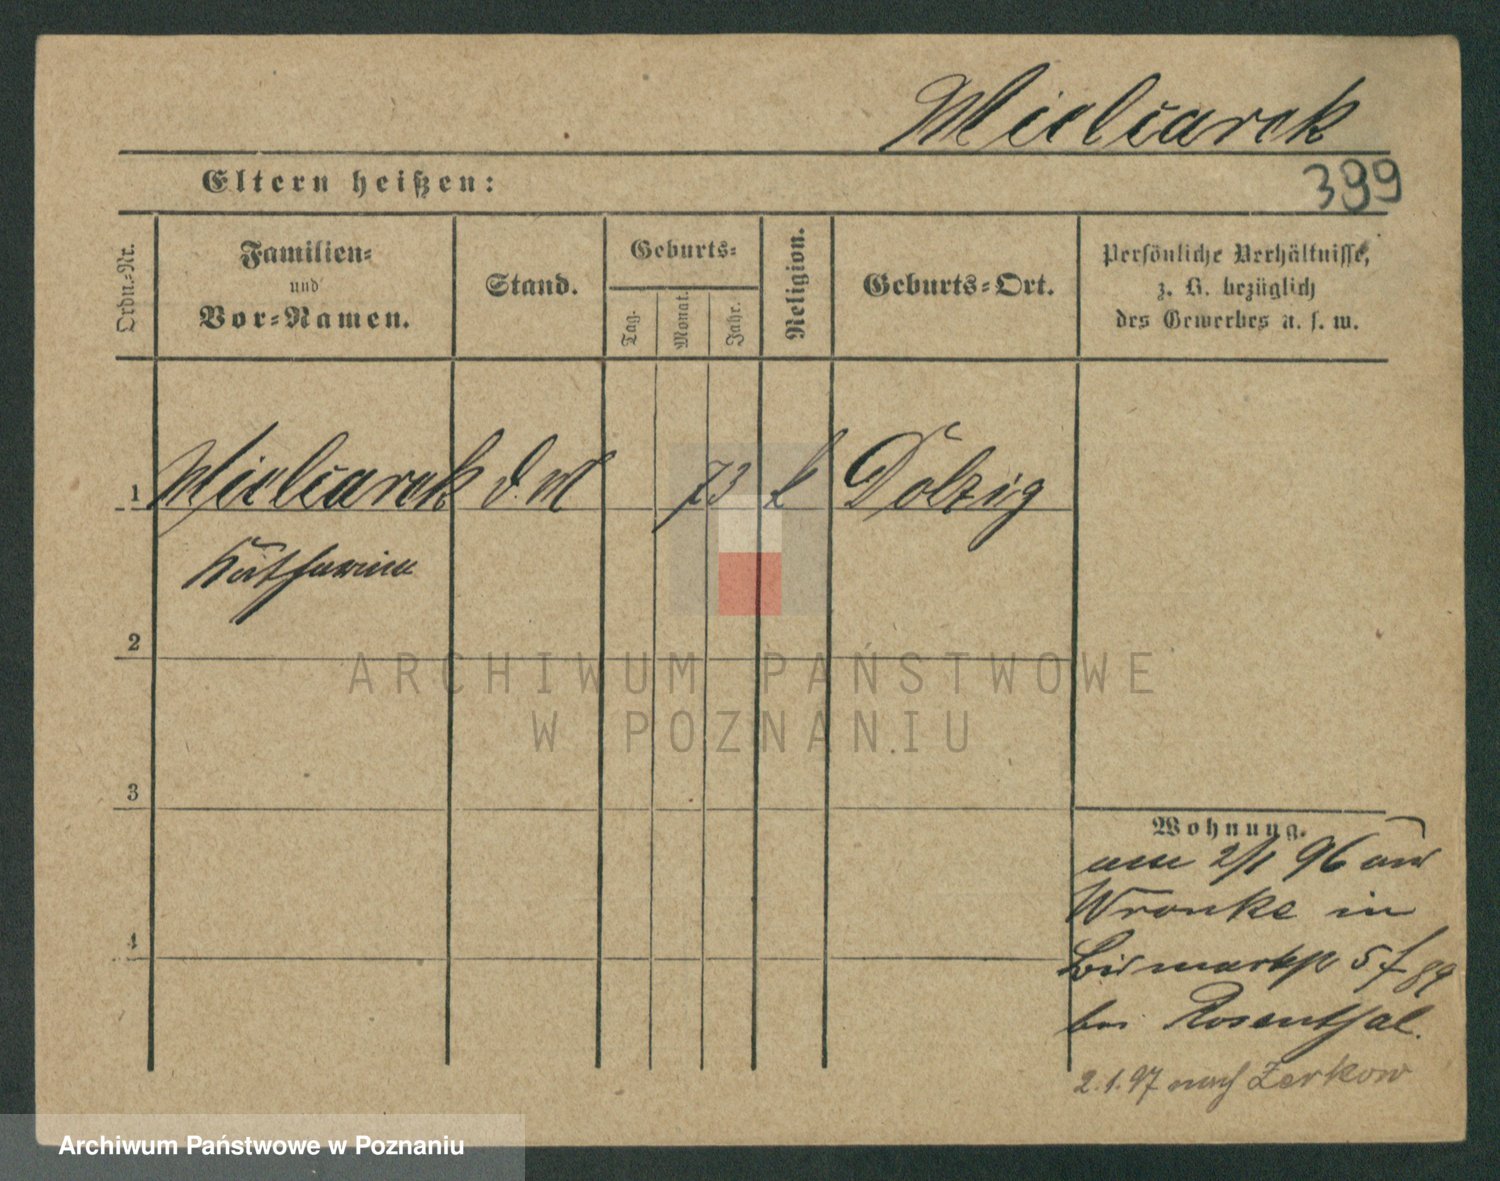 Mielcarek
399
Eltern heißen:
Ordn.-Nr.
Familien-
und
Vor-Namen.
Stand.
Geburts-
Tag.
Monat.
Jahr.
Religion.
Geburts-Ort.
Persönliche Verhältnisse,
z. B. bezüglich
des Gewerbes u. s. w.
1 Mielcarek d. M 73 k Dolzig
Katharina
2
ARCHIWUM PAŃSTWOWE
W POZNANIU
3
Wohnung.
am 2/1 96 aus
Wronke in
4
Bismarkstr 5 f 89
bei Rosenthal.
2.1.97 nach Zerkow
Archiwum Państwowe w Poznaniu